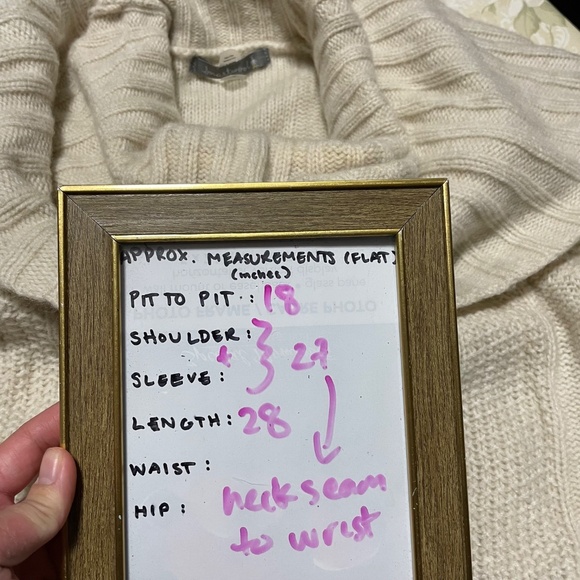 APPROX. MEASUREMENTS (FLAT)
(inches)
PIT TO PIT : 18
SHOULDER :
+ } 27
SLEEVE :
LENGTH: 28
WAIST :
HIP :
neck seam
to wrist
PHOTO FRAME / CADRE PHOTO